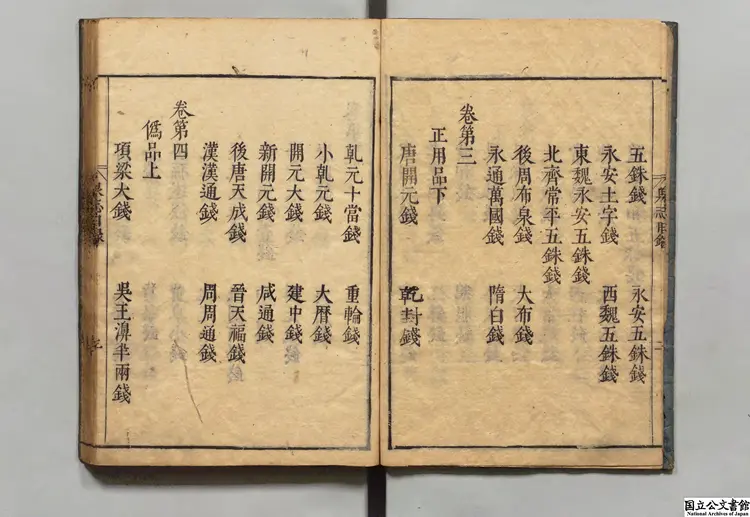 五銖錢 永安五銖錢
永安土字錢 西魏五銖錢
東魏永安五銖錢
北齊常平五銖錢
後周布泉錢 大布錢
永通萬國錢 隋白錢
卷第三
正用品下
唐開元錢 乾封錢
乾元十當錢 重輪錢
小乾元錢 大曆錢
開元大錢 建中錢
新開元錢 咸通錢
後唐天成錢 晉天福錢
漢漢通錢 周周通錢
卷第四
僞品上
項梁大錢 吳王濞半兩錢
国立公文書館
National Archives of Japan